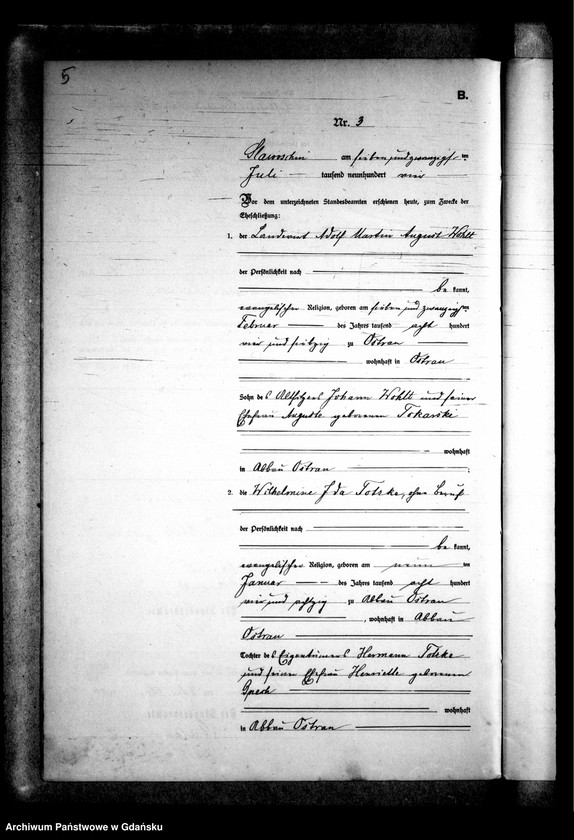 5
B.
Nr. 3
Slawoschin am sieben und zwanzigsten
Juli tausend neunhundert vier
Vor dem unterzeichneten Standesbeamten erschienen heute, zum Zwecke der
Eheschließung:
1. der Landwirt Adolf Martin August Wohlt
der Persönlichkeit nach
be kannt,
evangelischer Religion, geboren am sieben und zwanzigsten
Februar des Jahres tausend acht hundert
vier und siebzig zu Ostrau
wohnhaft in Ostrau
Sohn des Altsitzers Johann Wohlt und seiner
Ehefrau Auguste geborenen Tokarski
wohnhaft
in Abbau Ostrau ;
2. die Wilhelmine Ida Totzke, ohne Beruf
der Persönlichkeit nach
be kannt,
evangelischer Religion, geboren am neunten
Januar des Jahres tausend acht hundert
vier und achtzig zu Abbau Ostrau
, wohnhaft in Abbau
Ostrau
Tochter des Eigentümers Hermann Totzke
und seiner Ehefrau Henriette geborenen
wohnhaft
in Abbau Ostrau
Archiwum Państwowe w Gdańsku